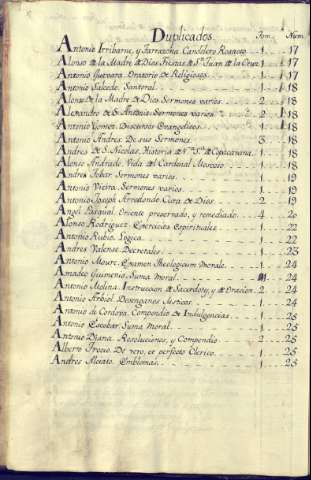 Duplicados. Tom. Num.
Antonio Irribarne, y Tarracona Candelero Roseto 1 17
Alonso de la Madre de Dios Fiestas de Sn Juan de la Cruz 1 17
Antonio Guevara. Oratorio de Religiosos 1 17
Antonio Salcedo. Santoral 1 18
Alonso de la Madre de Dios. Sermones varios 2 18
Alexandro de S. Antonio. Sermones varios 2 18
Antonio Gomez. Discursos Evangelicos 1 18
Antonio Andres. De sus Sermones 3 18
Andres de S. Nicolas. Historia de Na Sa de Copacavana 1 18
Alonso Andrade. Vida del Cardenal Moscoso 1 18
Andres Tobar. Sermones varios 1 19
Antonio Vieira. Sermones varios 1 19
Antonio Joseph Arredondo Cura de Dios 2 19
Angel Pasqual. Oriente preservado, y remediado 4 20
Alonso Rodriguez. Exercicios Espirituales 1 22
Antonio Rubio. Logica 1 22
Andres Valense. Decretales 1 23
Antonio Moure. Examen Theologicum Morale 1 24
Amadeo Guimenio. Suma Moral 1 24
Antonio Molina. Instruccion de Sacerdotes, y de Oracion 2 24
Antonio Arbiol. Desenganos Misticos 1 24
Antonio de Cordova. Compendio de Indulgencias 1 25
Antonio Escobar. Suma Moral 1 25
Antonio Diana. Resoluciones, y Compendio 2 25
Alberto. De vero, et perfecto Clerico 1 25
Andres Alciato. Emblemas 1 25